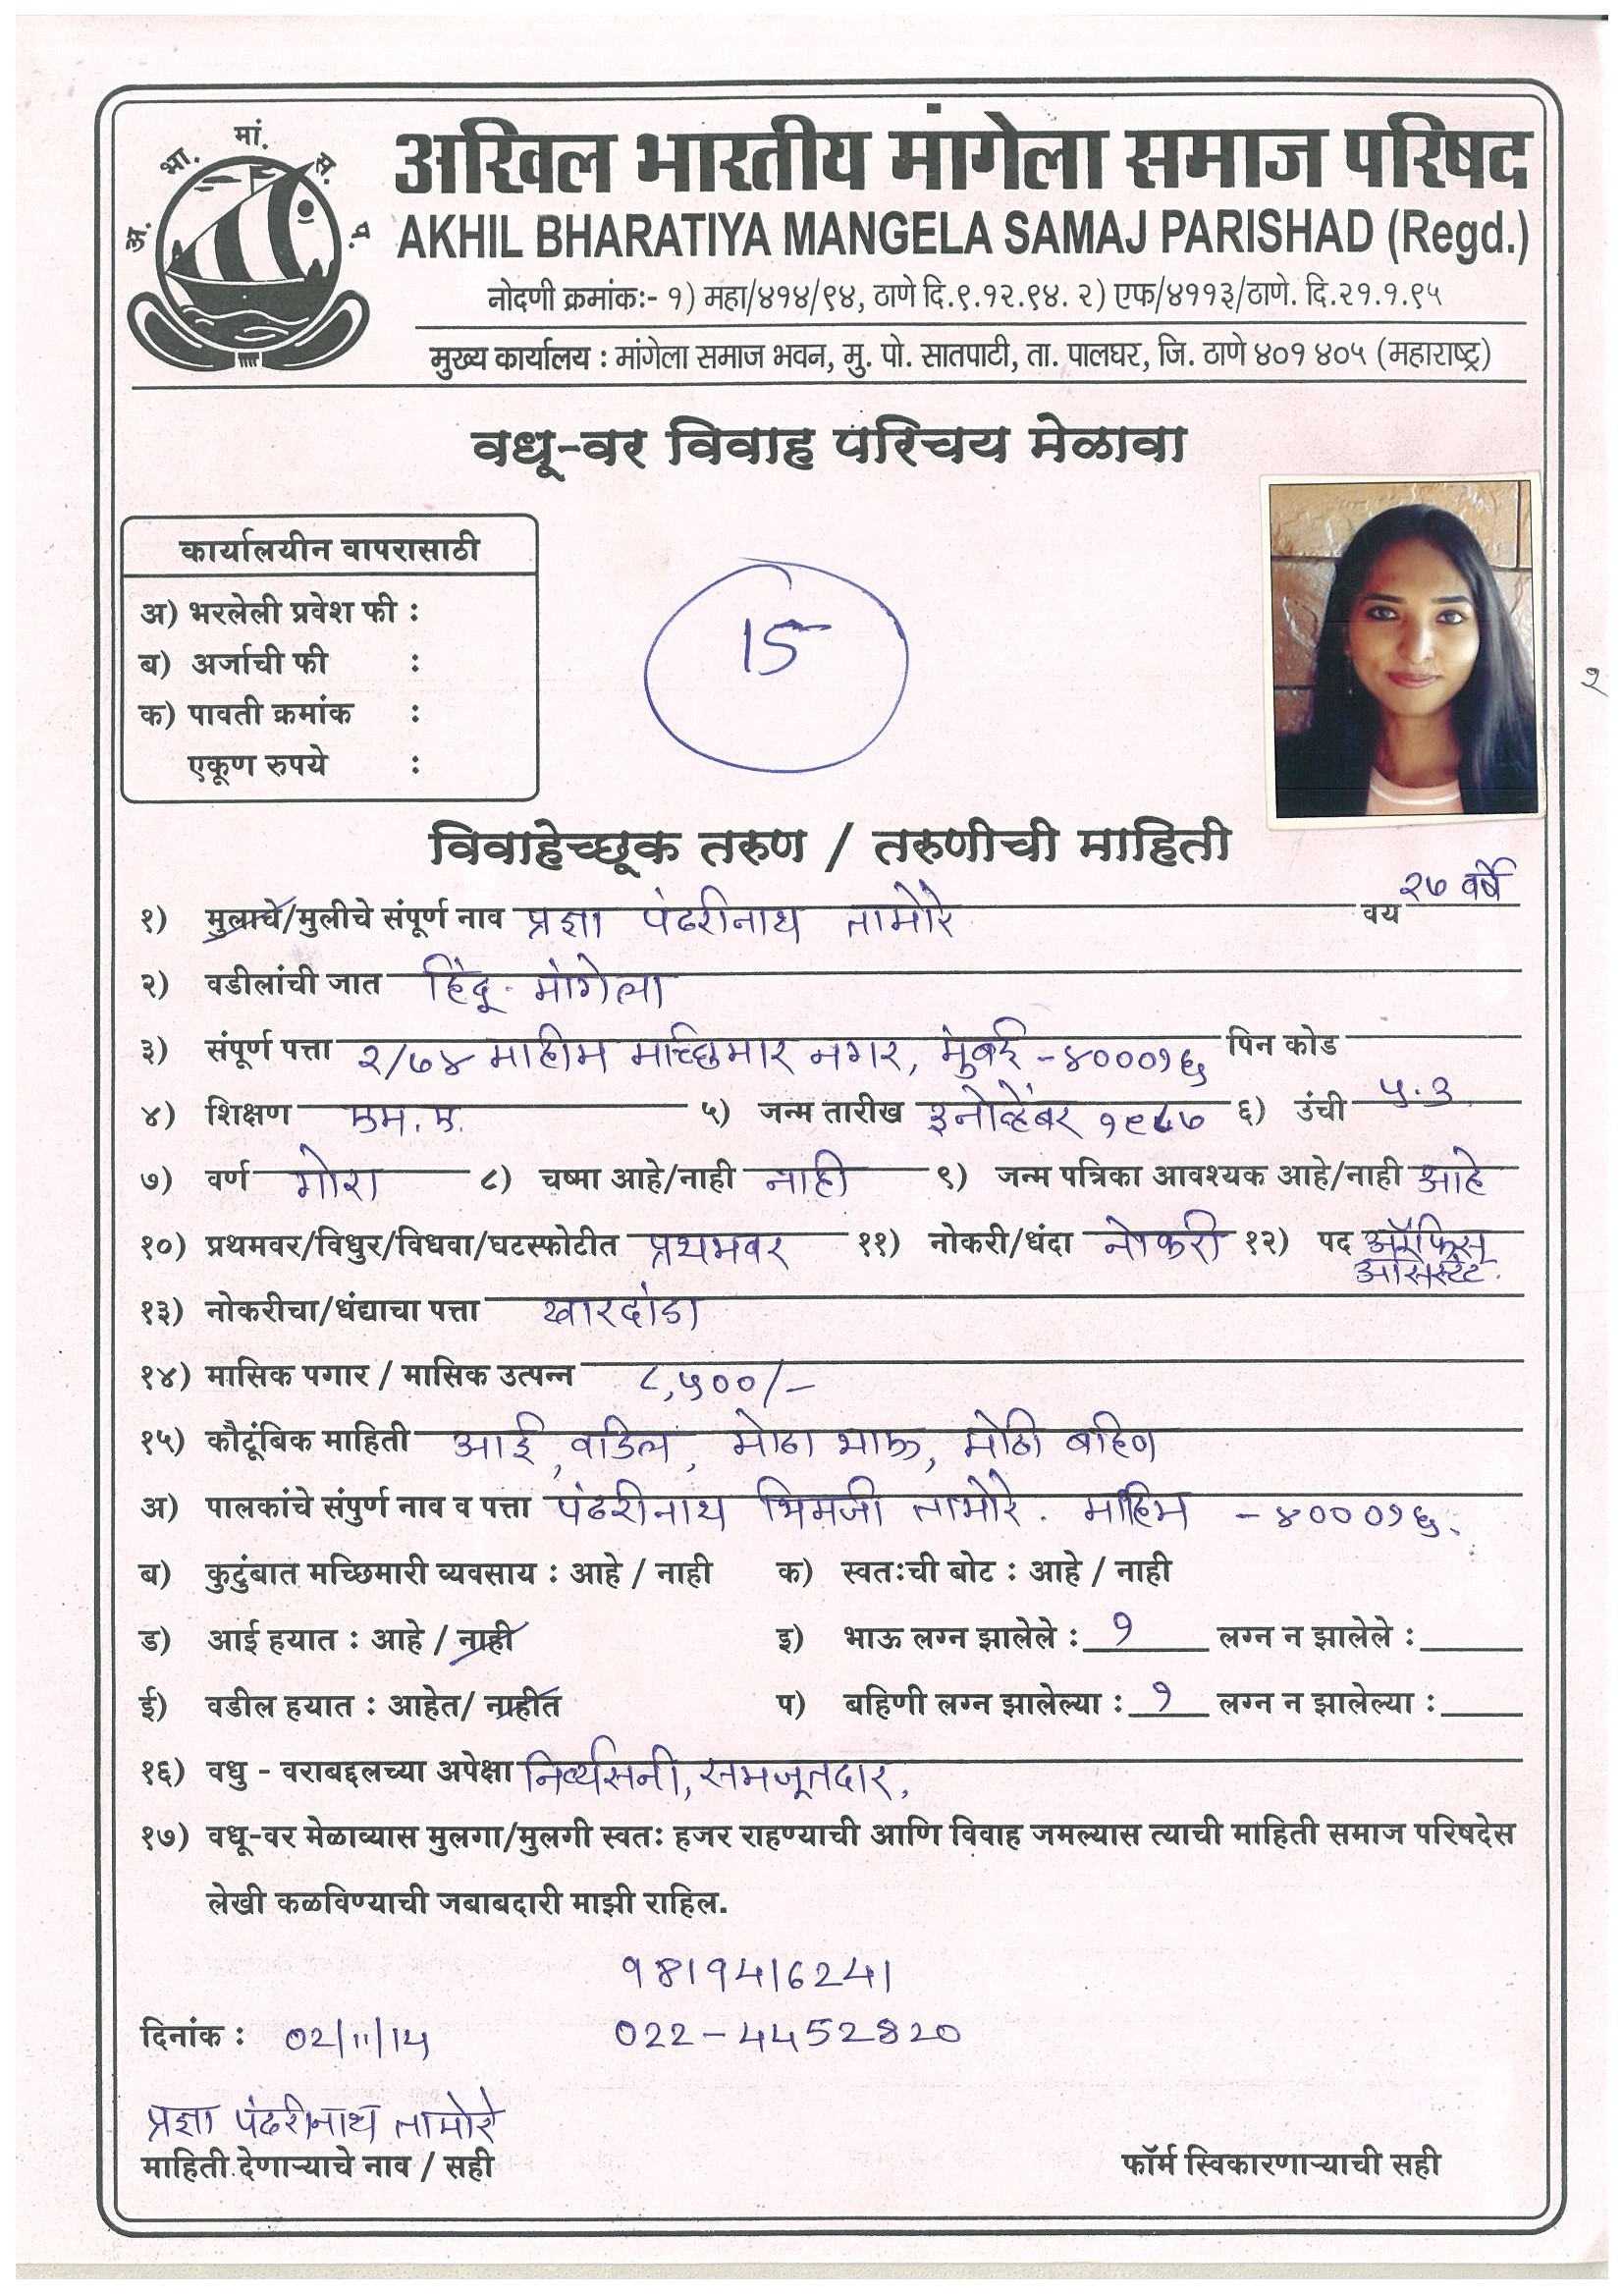 अ. भा. मां. स. प.
अखिल भारतीय मांगेला समाज परिषद
AKHIL BHARATIYA MANGELA SAMAJ PARISHAD (Regd.)
नोदणी क्रमांकः- १) महा/४१४/९४, ठाणे दि.९.१२.९४. २) एफ/४११३/ठाणे. दि.२१.१.९५
मुख्य कार्यालय : मांगेला समाज भवन, मु. पो. सातपाटी, ता. पालघर, जि. ठाणे ४०१ ४०५ (महाराष्ट्र)
वधू-वर विवाह परिचय मेळावा
कार्यालयीन वापरासाठी
अ) भरलेली प्रवेश फी :
ब) अर्जाची फी :
क) पावती क्रमांक :
एकूण रुपये :
15
२
विवाहेच्छूक तरुण / तरुणीची माहिती
१) मुलाचे/मुलीचे संपूर्ण नाव प्रज्ञा पंढरीनाथ तामोरे वय २७ वर्षे
२) वडीलांची जात हिंदू - मांगेला
३) संपूर्ण पत्ता २/७४ माहीम मच्छिमार नगर, मुंबई - ४०००१६ पिन कोड
४) शिक्षण एम. ए. ५) जन्म तारीख ३नोव्हेंबर १९८७ ६) उंची ५.३
७) वर्ण गोरा ८) चष्मा आहे/नाही नाही ९) जन्म पत्रिका आवश्यक आहे/नाही आहे
१०) प्रथमवर/विधुर/विधवा/घटस्फोटीत प्रथमवर ११) नोकरी/धंदा नोकरी १२) पद ऑफिस
असिस्टंट.
१३) नोकरीचा/धंद्याचा पत्ता खारदांडा
१४) मासिक पगार / मासिक उत्पन्न ८,५००/-
१५) कौटूंबिक माहिती आई, वडिल, मोठा भाऊ, मोठी बहिण
अ) पालकांचे संपुर्ण नाव व पत्ता पंढरीनाथ भिमजी तामोरे. माहिम - ४०००१६.
ब) कुटुंबात मच्छिमारी व्यवसाय : आहे / नाही क) स्वतःची बोट : आहे / नाही
ड) आई हयात : आहे / नाही इ) भाऊ लग्न झालेले : १ लग्न न झालेले :
ई) वडील हयात : आहेत/ नाहीत प) बहिणी लग्न झालेल्या : १ लग्न न झालेल्या :
१६) वधु - वराबद्दलच्या अपेक्षा निर्व्यसनी, समजूतदार,
१७) वधू-वर मेळाव्यास मुलगा/मुलगी स्वतः हजर राहण्याची आणि विवाह जमल्यास त्याची माहिती समाज परिषदेस
लेखी कळविण्याची जबाबदारी माझी राहिल.
9819416241
दिनांक : 02/11/14 022-4452820
प्रज्ञा पंढरीनाथ तामोरे
माहिती देणाऱ्याचे नाव / सही फॉर्म स्विकारणाऱ्याची सही